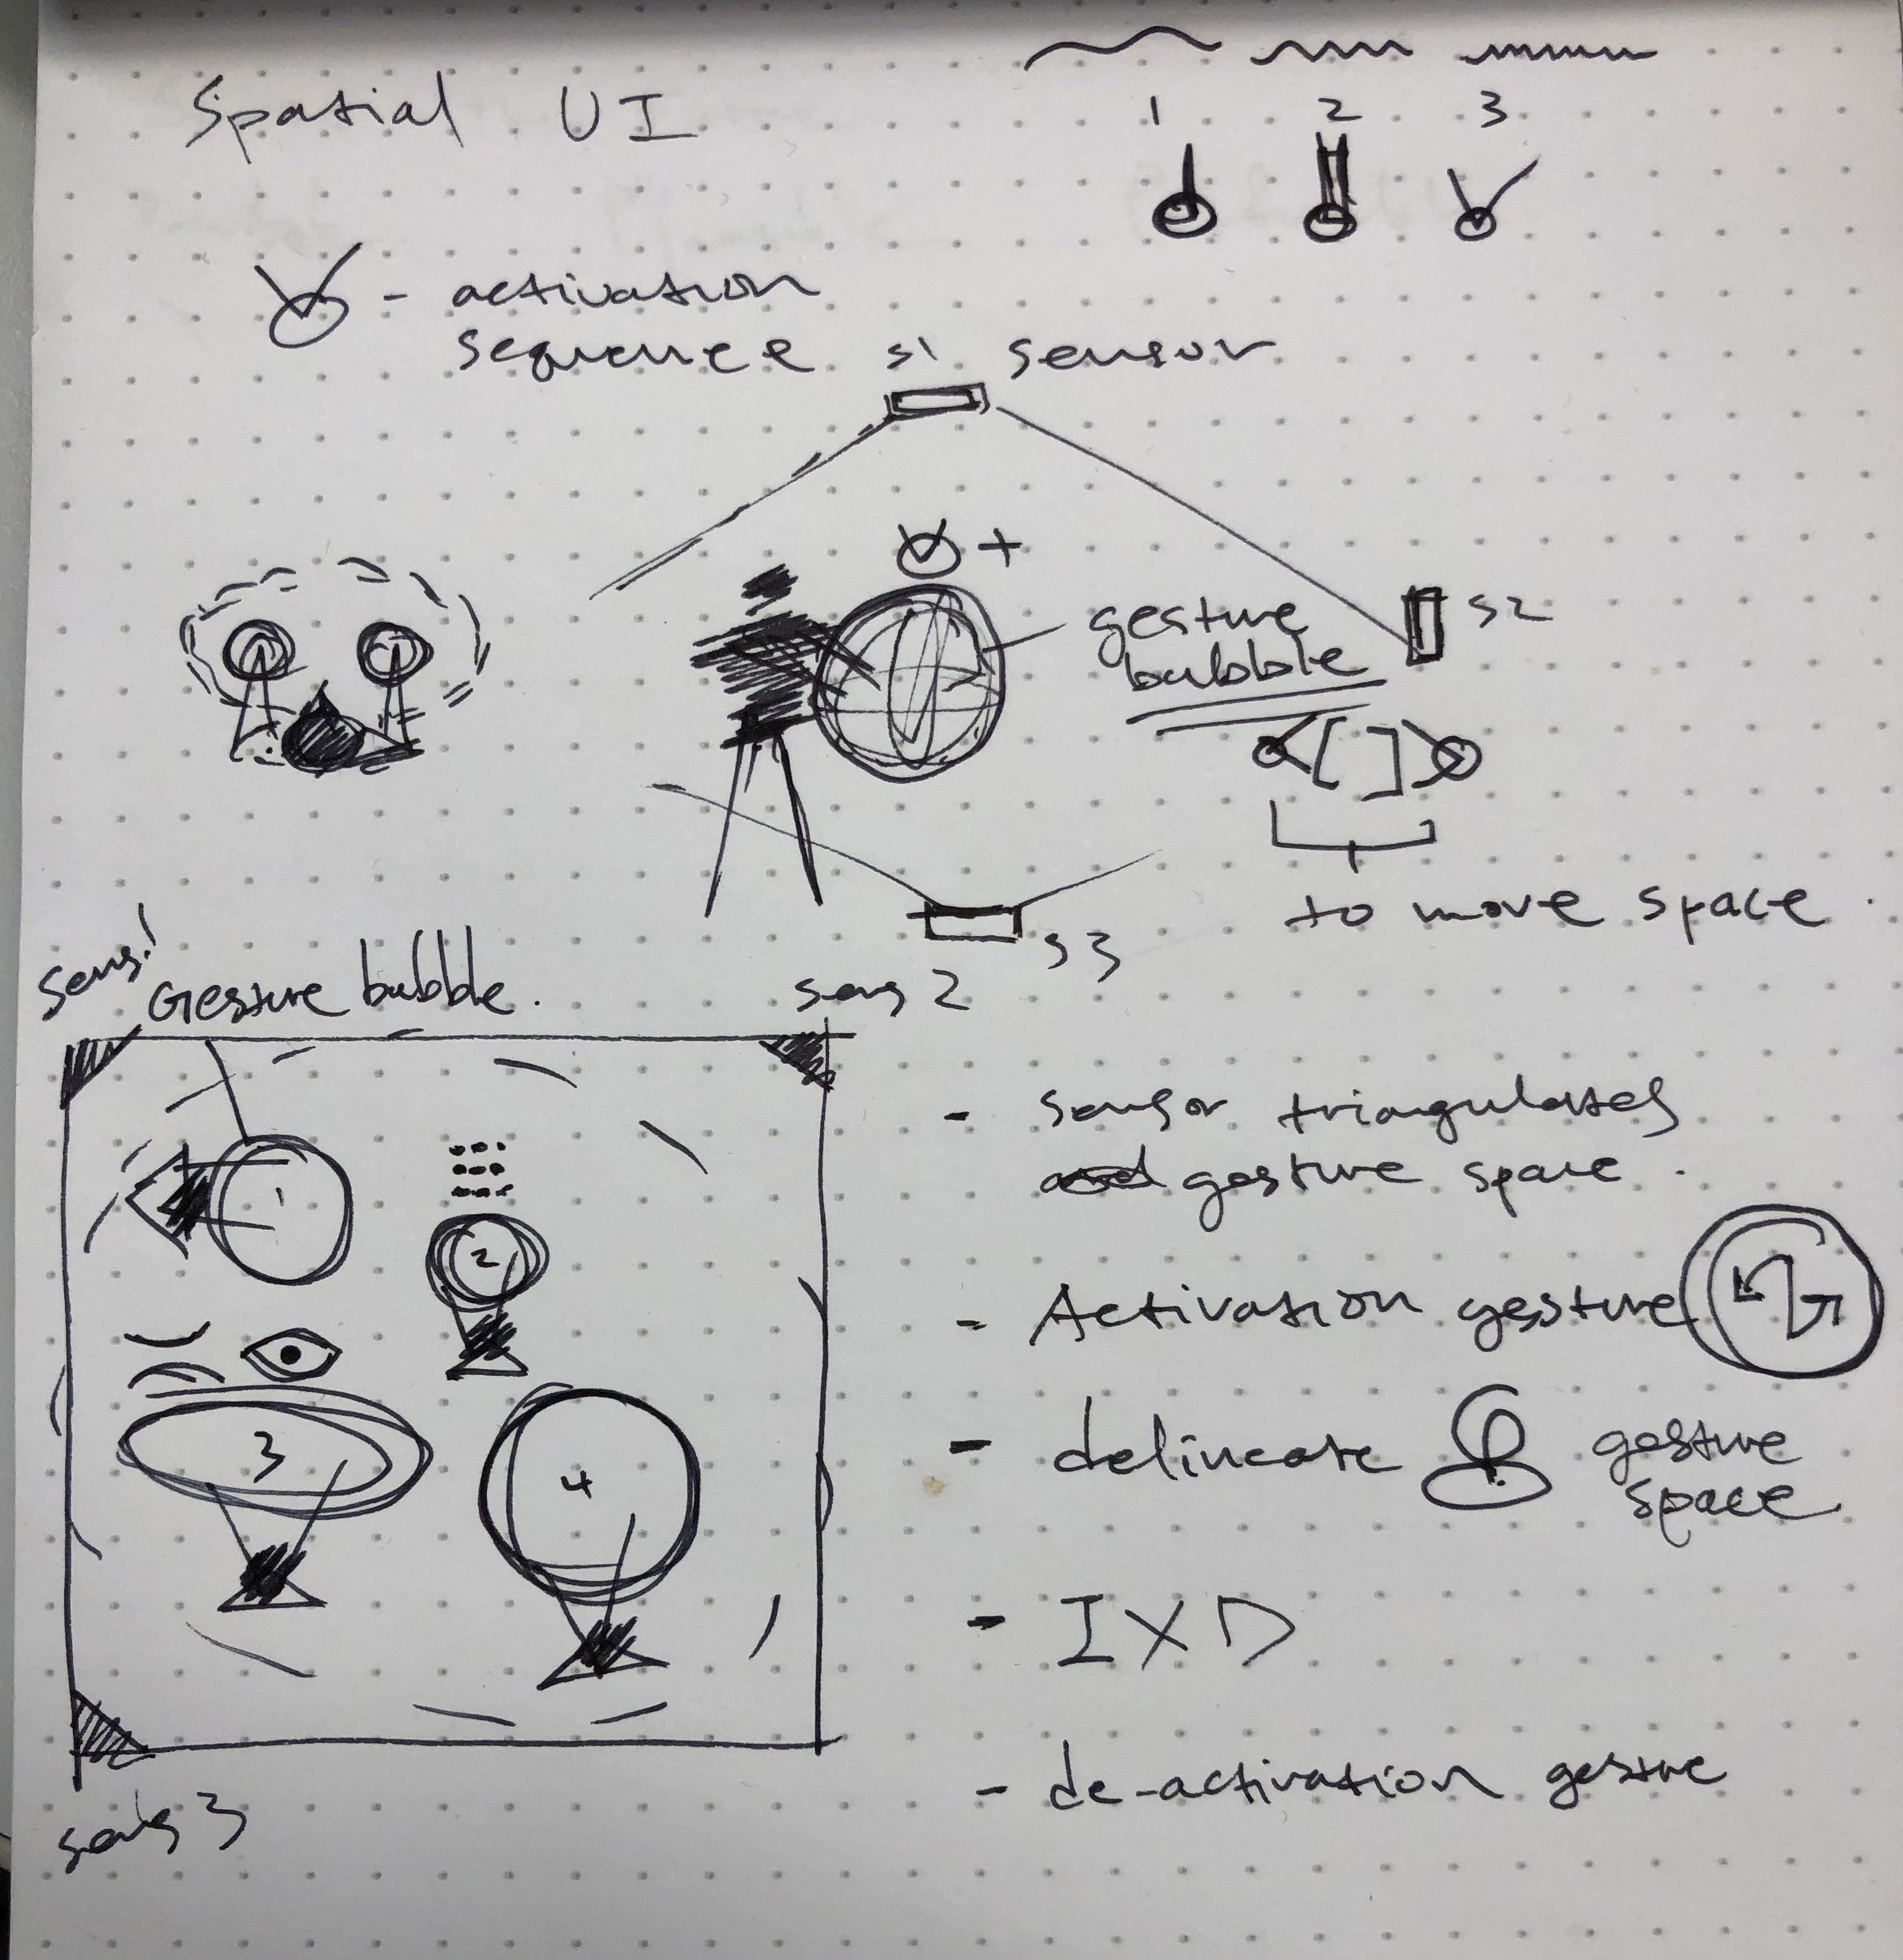 Spatial UI
1 2 3
- activation
sequence
s1 sensor
+
gesture
bubble
s2
to move space
s3
sens1
Gesture bubble.
sens 2
1
2
3
4
sens 3
- sensor triangulates
and gesture space.
- Activation gesture
- delineate gesture
space
- IXD
- de-activation gesture